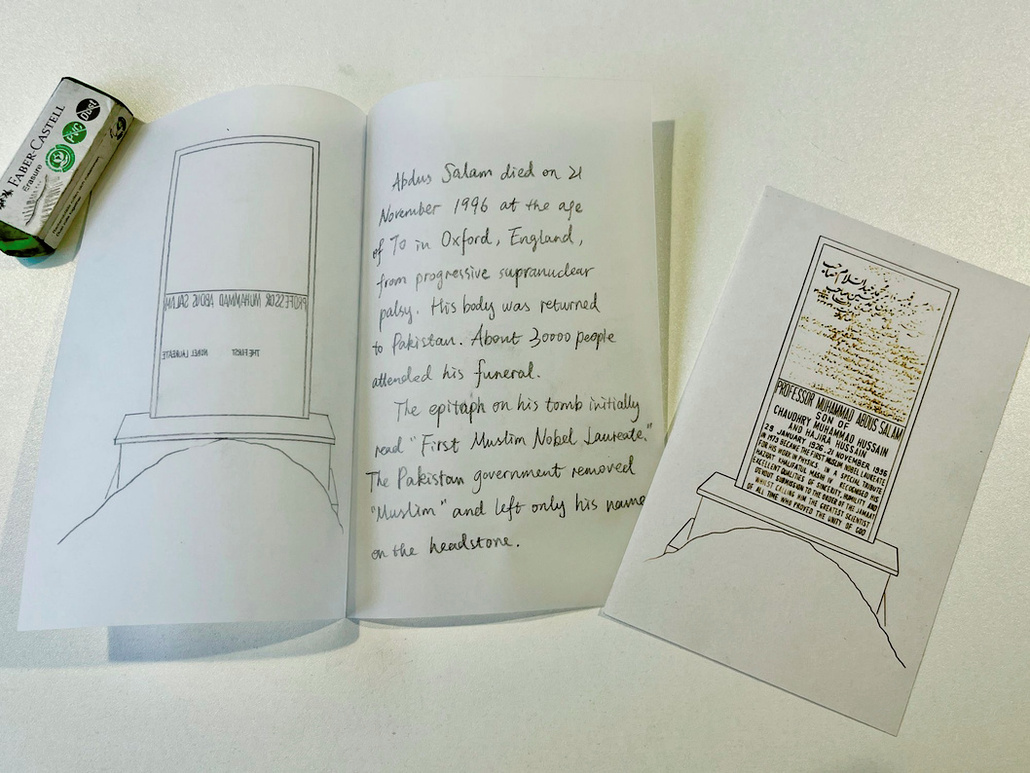 FABER-CASTELL
Erasure
PVC
PROFESSOR MUHAMMAD ABDUS SALAM
THE FIRST NOBEL LAUREATE
Abdus Salam died on 21
November 1996 at the age
of 70 in Oxford, England,
from progressive supranuclear
palsy. His body was returned
to Pakistan. About 30000 people
attended his funeral.
The epitaph on his tomb initially
read "First Muslim Nobel Laureate."
The Pakistan government removed
"Muslim" and left only his name
on the headstone.
PROFESSOR MUHAMMAD ABDUS SALAM
SON OF
CHAUDHRY MUHAMMAD HUSSAIN
AND HAJIRA HUSSAIN
29 JANUARY 1926, 21 NOVEMBER 1996
IN 1979 BECAME THE FIRST MUSLIM NOBEL LAUREATE
FOR HIS WORK IN PHYSICS. IN A SPECIAL TRIBUTE
HAZRAT KHALIFATUL MASIH IV RECOGNISED HIS
EXCELLENT QUALITIES OF SINCERITY, HUMILITY AND
DEVOUT SUBMISSION TO THE ORDER OF THE JAMAAT
WHILST CALLING HIM THE GREATEST SCIENTIST
OF ALL TIME WHO PROVED THE UNITY OF GOD